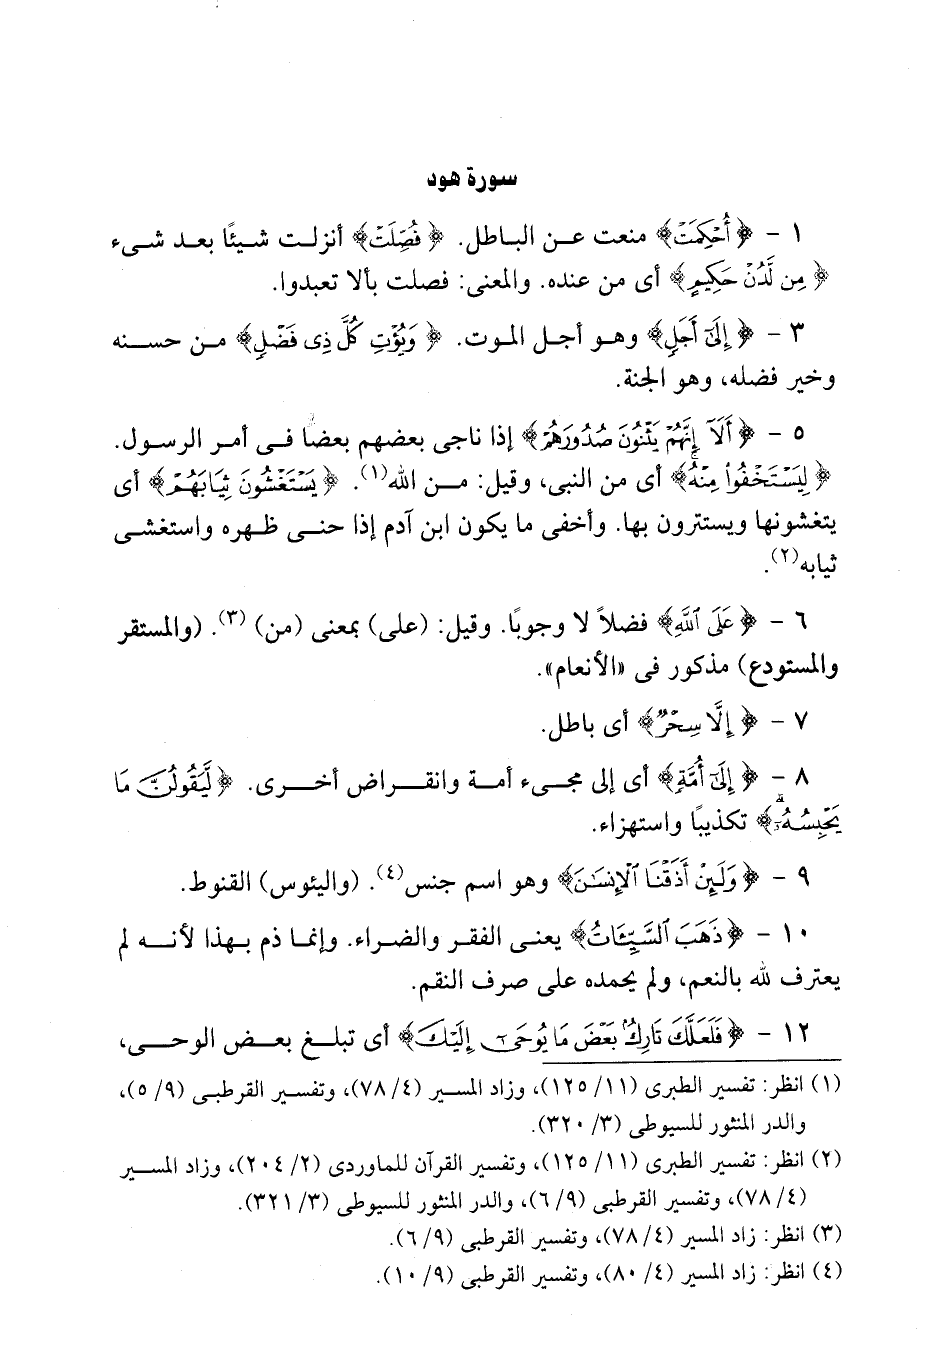 سورة هود
١ - ﴿أُحْكِمَتْ﴾ منعت عن الباطل. ﴿فُصِّلَتْ﴾ أنزلت شيئًا بعد شىء
﴿مِن لَّدُنْ حَكِيمٍ﴾ أى من عنده. والمعنى: فصلت بألا تعبدوا.
٣ - ﴿إِلَىٰٓ أَجَلٍ﴾ وهو أجل الموت. ﴿وَيُؤْتِ كُلَّ ذِى فَضْلٍ﴾ من حسنه
وخير فضله، وهو الجنة.
٥ - ﴿أَلَآ إِنَّهُمْ يَثْنُونَ صُدُورَهُمْ﴾ إذا ناجى بعضهم بعضًا فى أمر الرسول.
﴿لِيَسْتَخْفُوا۟ مِنْهُ﴾ أى من النبى، وقيل: من الله(١). ﴿يَسْتَغْشُونَ ثِيَابَهُمْ﴾ أى
يتغشونها ويستترون بها. وأخفى ما يكون ابن آدم إذا حنى ظهره واستغشى
ثيابه(٢).
٦ - ﴿عَلَى ٱللَّهِ﴾ فضلاً لا وجوبًا. وقيل: (على) بمعنى (من) (٣). (والمستقر
والمستودع) مذكور فى «الأنعام».
٧ - ﴿إِلَّا سِحْرٌ﴾ أى باطل.
٨ - ﴿إِلَىٰٓ أُمَّةٍ﴾ أى إلى مجىء أمة وانقراض أخرى. ﴿لَّيَقُولُنَّ مَا
يَحْبِسُهُۥٓ﴾ تكذيبًا واستهزاء.
٩ - ﴿وَلَئِنْ أَذَقْنَا ٱلْإِنسَٰنَ﴾ وهو اسم جنس(٤). (واليئوس) القنوط.
١٠ - ﴿ذَهَبَ ٱلسَّيِّـَٔاتُ﴾ يعنى الفقر والضراء. وإنما ذم بهذا لأنه لم
يعترف لله بالنعم، ولم يحمده على صرف النقم.
١٢ - ﴿فَلَعَلَّكَ تَارِكٌۢ بَعْضَ مَا يُوحَىٰٓ إِلَيْكَ﴾ أى تبلغ بعض الوحى،
(١) انظر: تفسير الطبرى (١١/ ١٢٥)، وزاد المسير (٤/ ٧٨)، وتفسير القرطبى (٩/ ٥)،
والدر المنثور للسيوطى (٣/ ٣٢٠).
(٢) انظر: تفسير الطبرى (١١/ ١٢٥)، وتفسير القرآن للماوردى (٢/ ٢٠٤)، وزاد المسير
(٤/ ٧٨)، وتفسير القرطبى (٩/ ٦)، والدر المنثور للسيوطى (٣/ ٣٢١).
(٣) انظر: زاد المسير (٤/ ٧٨)، وتفسير القرطبى (٩/ ٦).
(٤) انظر: زاد المسير (٤/ ٨٠)، وتفسير القرطبى (٩/ ١٠).